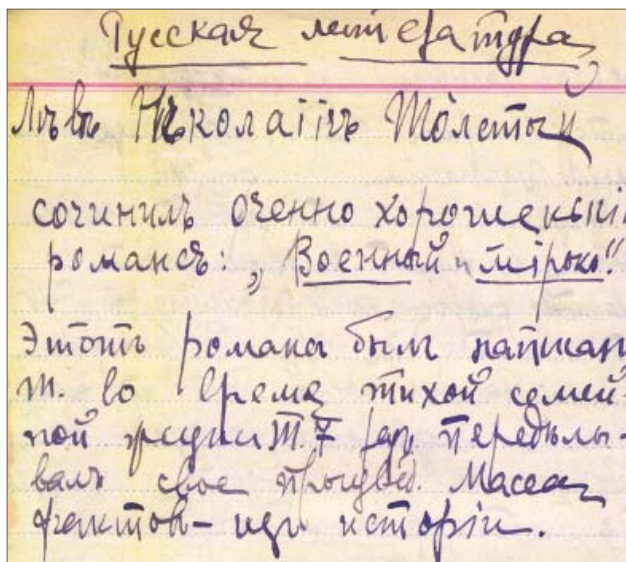 Русская литература
Лъвъ Николаiiчъ Толстый
сочинилъ оченно хорошенькiй
романсъ: „Военный и мiрько“.
Этотъ романъ былъ написан
Т. во время тихой семей-
ной жизни Т. 7 раз передѣлы-
валъ свое произвед. Масса
фактов – изъ исторiи.